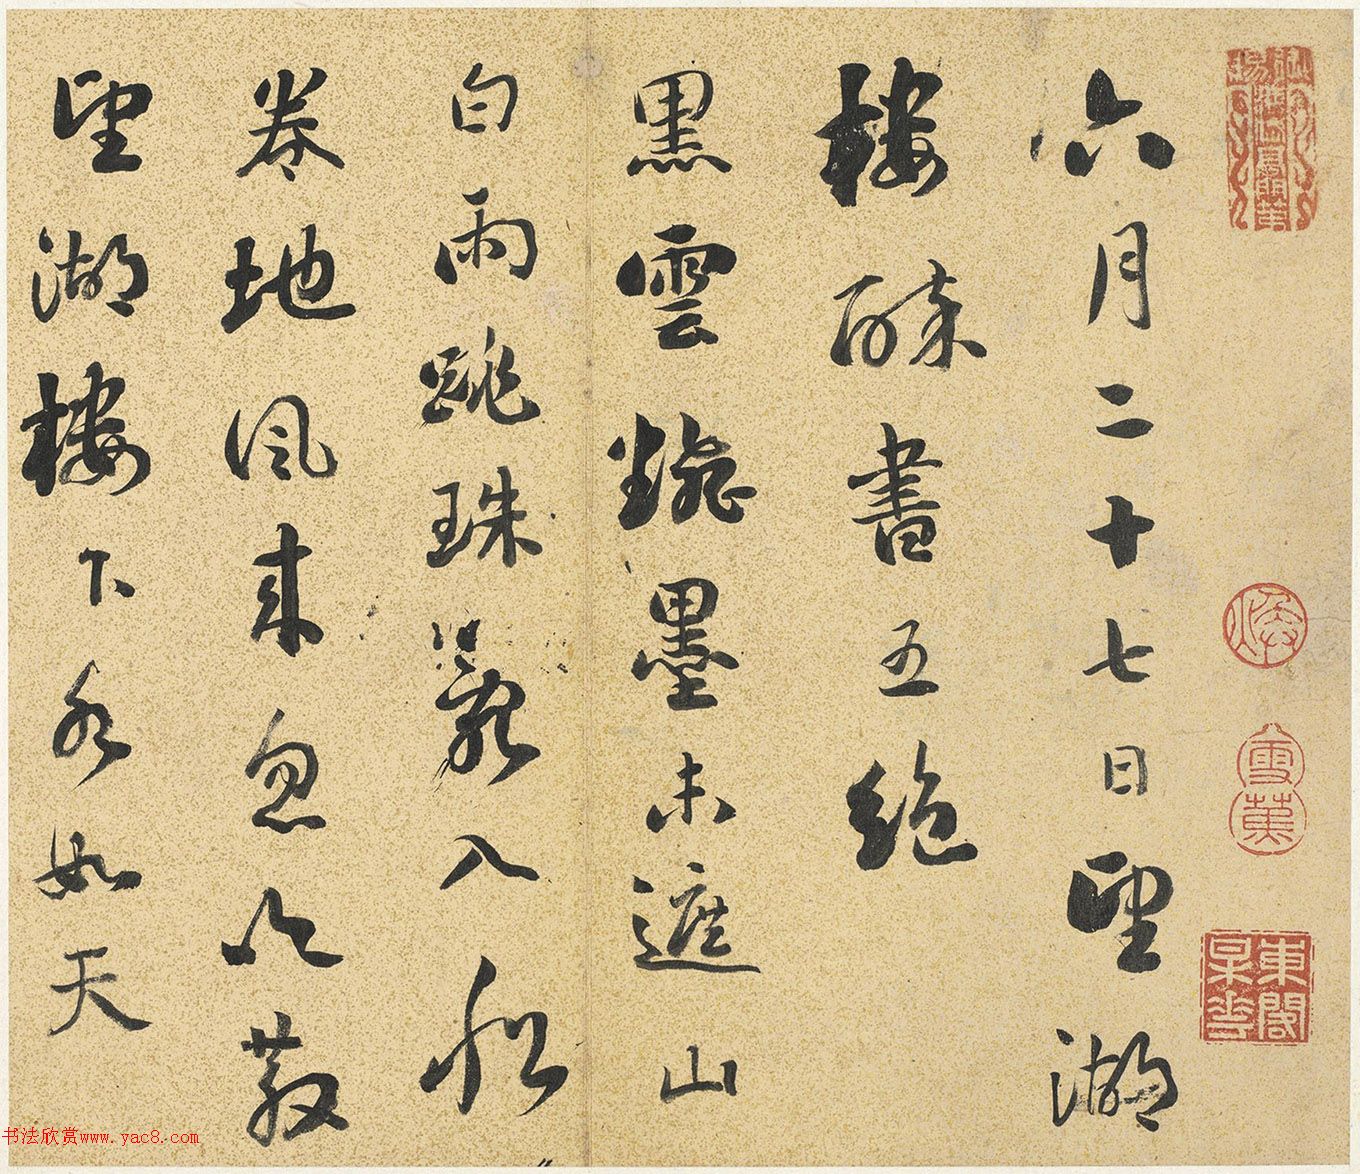 六月二十七日望湖
樓醉書五絕
黑雲飜墨未遮山
白雨跳珠亂入船
卷地風來忽吹散
望湖樓下水如天
雪蕉
東閣
书法欣赏www.yac8.com